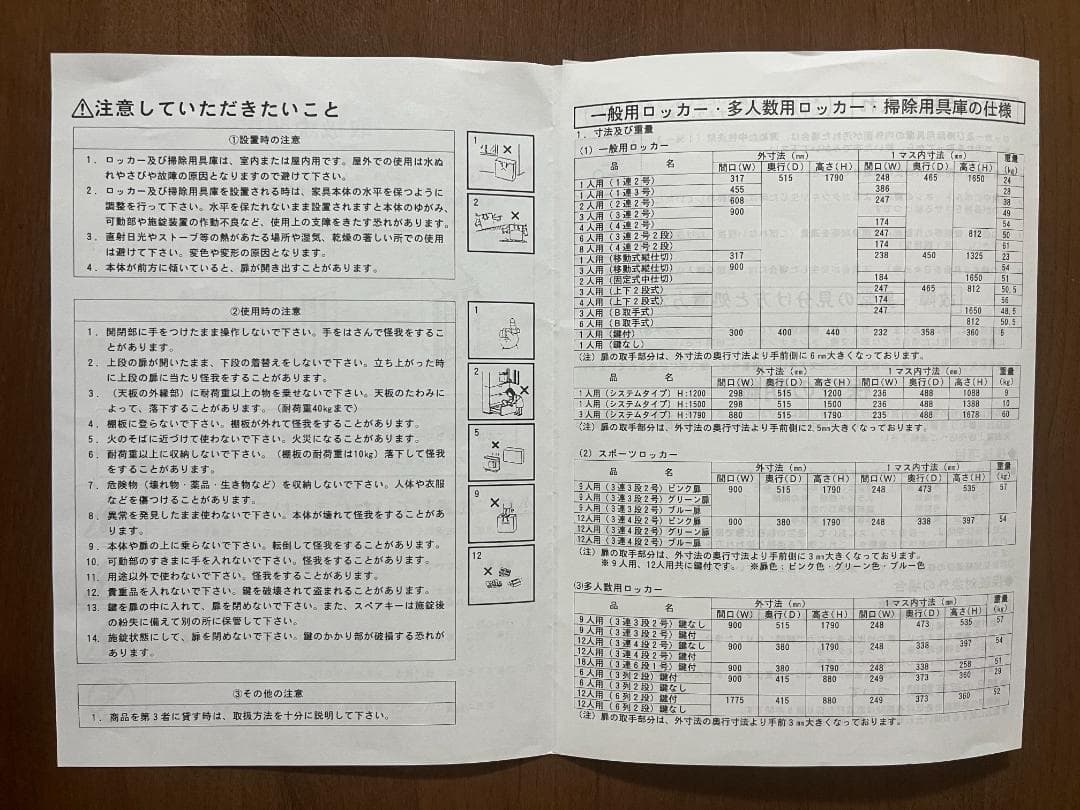 ⚠注意していただきたいこと
①設置時の注意
1．ロッカー及び掃除用具庫は、室内または屋内用です。屋外での使用は水ぬ
れやさびや故障の原因となりますので避けて下さい。
2．ロッカー及び掃除用具庫を設置される時は、家具本体の水平を保つように
調整を行って下さい。水平を保たれないまま設置されますと本体のゆがみ、
可動部や施錠装置の作動不良など、使用上の支障をきたす恐れがあります。
3．直射日光やストーブ等の熱があたる場所や湿気、乾燥の著しい所での使用
は避けて下さい。変色や変形の原因となります。
4．本体が前方に傾いていると、扉が開き出すことがあります。
1
2
②使用時の注意
1．開閉部に手をつけたまま操作しないで下さい。手をはさんで怪我をするこ
とがあります。
2．上段の扉が開いたまま、下段の着替えをしないで下さい。立ち上がった時
に上段の扉に当たり怪我をすることがあります。
3．（天板の外縁部）に耐荷重以上の物を乗せないで下さい。天板のたわみに
よって、落下することがあります。（耐荷重40kgまで）
4．棚板に登らないで下さい。棚板が外れて怪我をすることがあります。
5．火のそばに近づけて使わないで下さい。火災になることがあります。
6．耐荷重以上に収納しないで下さい。（棚板の耐荷重は10kg）落下して怪我
をすることがあります。
7．危険物（壊れ物・薬品・生き物など）を収納しないで下さい。人体や衣服
などを傷つけることがあります。
8．異常を発見したまま使わないで下さい。本体が壊れて怪我をすることがあ
ります。
9．本体や扉の上に乗らないで下さい。転倒して怪我をすることがあります。
10．可動部のすきまに手を入れないで下さい。怪我をすることがあります。
11．用途以外で使わないで下さい。怪我をすることがあります。
12．貴重品を入れないで下さい。鍵を破壊されて盗まれることがあります。
13．鍵を扉の中に入れて、扉を閉めないで下さい。また、スペアキーは施錠後
の紛失に備えて別の所に保管して下さい。
14．施錠状態にして、扉を閉めないで下さい。鍵のかかり部が破損する恐れが
あります。
1
2
5
9
12
③その他の注意
1．商品を第3者に貸す時は、取扱方法を十分に説明して下さい。
一般用ロッカー・多人数用ロッカー・掃除用具庫の仕様
1．寸法及び重量
(1) 一般用ロッカー
品 名 外寸法（㎜） 1マス内寸法（㎜） 重量
間口(W) 奥行(D) 高さ(H) 間口(W) 奥行(D) 高さ(H) (kg)
1人用（1連2号） 317 515 1790 248 465 1650 24
1人用（1連3号） 455 386 28
2人用（2連2号） 608 247 38
3人用（3連2号） 900 49
4人用（4連2号） 174 54
6人用（3連2号2段） 247 812 50
8人用（4連2号2段） 174 61
1人用（移動式縦仕切） 317 238 450 1325 23
3人用（移動式縦仕切） 900 54
2人用（固定式中仕切） 184 1650 51
3人用（上下2段式） 247 465 812 50.5
4人用（上下2段式） 174 56
3人用（B取手式） 247 1650 48.5
6人用（B取手式） 812 50.5
1人用（鍵付） 300 400 440 232 358 360 6
1人用（鍵なし）
（注）扉の取手部分は、外寸法の奥行寸法より手前側に6㎜大きくなっております。
品 名 外寸法（㎜） 1マス内寸法（㎜） 重量
間口(W) 奥行(D) 高さ(H) 間口(W) 奥行(D) 高さ(H) (kg)
1人用(システムタイプ) H:1200 298 515 1200 236 488 1088 9
1人用(システムタイプ) H:1500 298 515 1500 236 488 1388 10
3人用(システムタイプ) H:1790 880 515 1790 235 488 1678 60
（注）扉の取手部分は、外寸法の奥行寸法より手前側に2.5㎜大きくなっております。
(2) スポーツロッカー
品 名 外寸法（㎜） 1マス内寸法（㎜） 重量
間口(W) 奥行(D) 高さ(H) 間口(W) 奥行(D) 高さ(H) (kg)
9人用（3連3段2号）ピンク扉 900 515 1790 248 473 535 57
9人用（3連3段2号）グリーン扉
9人用（3連3段2号）ブルー扉
12人用（3連4段2号）ピンク扉 900 380 1790 248 338 397 54
12人用（3連4段2号）グリーン扉
12人用（3連4段2号）ブルー扉
（注）扉の取手部分は、外寸法の奥行寸法より手前側に3㎜大きくなっております。
※9人用、12人用共に鍵付です。 ※扉色：ピンク色・グリーン色・ブルー色
(3)多人数用ロッカー
品 名 外寸法（㎜） 1マス内寸法（㎜） 重量
間口(W) 奥行(D) 高さ(H) 間口(W) 奥行(D) 高さ(H) (kg)
9人用（3連3段2号）鍵なし 900 515 1790 248 473 535 57
9人用（3連3段2号）鍵付
12人用（3連4段2号）鍵なし 900 380 1790 248 338 397 54
12人用（3連4段2号）鍵付
18人用（3連6段1号）鍵付 900 380 1790 248 338 258 51
6人用（3列2段）鍵付 900 415 880 249 373 360 29
6人用（3列2段）鍵なし
12人用（6列2段）鍵付 1775 415 880 249 373 360 52
12人用（6列2段）鍵なし
（注）扉の取手部分は、外寸法の奥行寸法より手前3㎜大きくなっております。